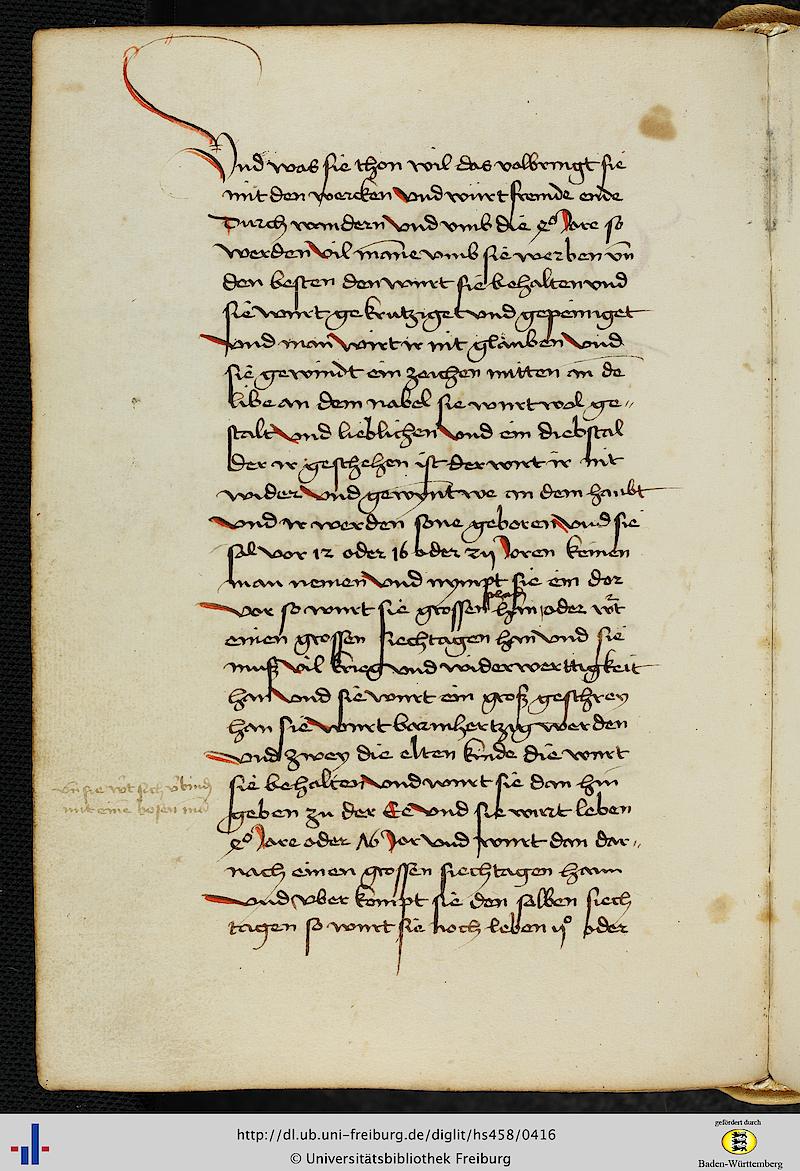 Vnd was sie thon wil das volbringt sie
mit den wercken vnd würt fremde ende
durch wandern vnd vmb die Jare so
werden vil mañe vmb sie werben vñ
den besten den wurt sie behalten vnd
sie wurt gekrutziget vnd gepeiniget
vnd man wirt ir nit glauben vnd
sie gewindt ein zeichen mitten an de
libe an dem nabel sie wurt wol ge-
stalt vnd lieblichen vnd ein diebstal
der ir geschehen ist der wirt ir nit
wider vnd gewynt we an dem haubt
vnd ir werden sone geboren vnd sie
sal vor 12 oder 16 oder Joren keinen
man nemen vnd nympt sie ein dor
vor so wurt sie grossen han oder
einen grossen siechtagen han vnd sie
muß vil krieg vnd widerwerttigkeit
han vnd sie wurt ein groß geschrey
han sie wurt barmhertzig werden
vnd zwey die elten kinde die wurt
sie behalten vnd wurt sie dan hin
geben zu der Ee vnd sie wirt leben
Jare oder Jor vnd wurt dan dar-
nach einen grossen siechtagen hann
vnd vber kompt sie den salben siech
tagen so wurt sie noch leben oder
vñ sie
mit eine bosen
http://dl.ub.uni-freiburg.de/diglit/hs458/0416
© Universitätsbibliothek Freiburg
gefördert durch
Baden-Württemberg